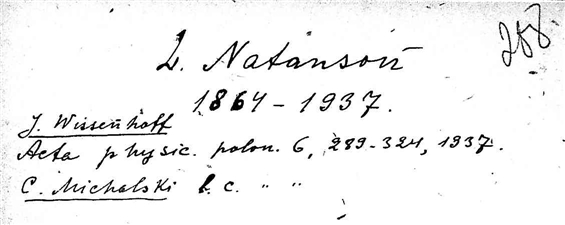 258.
L. Natanson
1864-1937.
J. Wissenhoff
Acta physic. polon. 6, 289-324, 1937.
C. Michalski l. c. " "